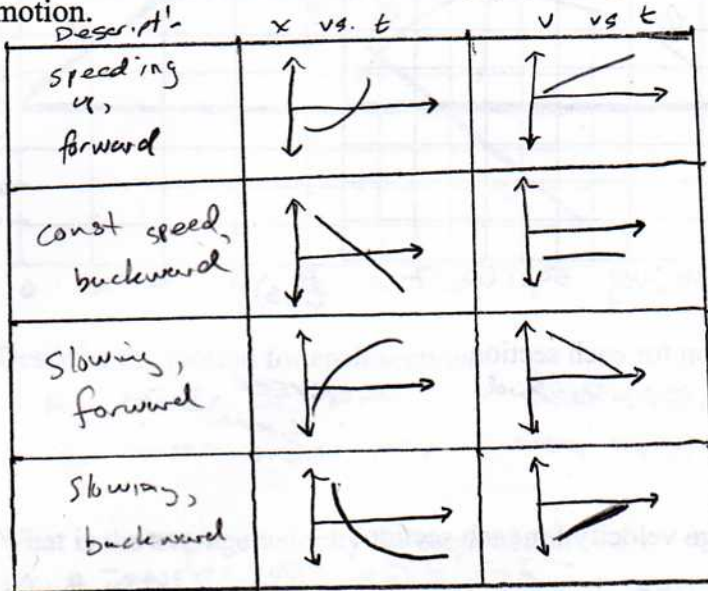 motion.
Descript'. x vs. t v vs t
speeding
up,
forward
const speed,
backward
Slowing,
forward
Slowing,
backward